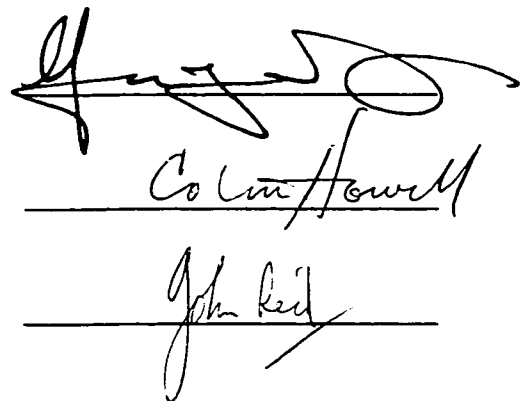 Colin Howell
John Reid